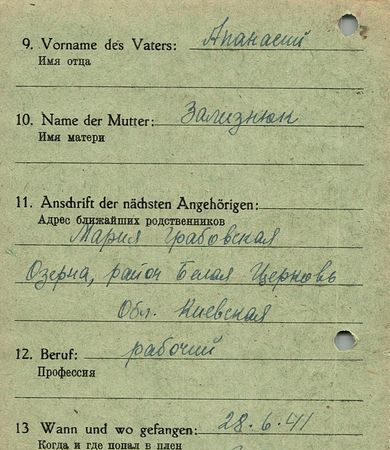 9. Vorname des Vaters: Апанасий
Имя отца
10. Name der Mutter: Зализнюк
Имя матери
11. Anschrift der nächsten Angehörigen:
Адрес ближайших родственников
Мария Грабовская
Озерна, район Белая Церковь
Обл. Киевская
12. Beruf: рабочий
Профессия
13 Wann und wo gefangen: 28.6.41
Когда и где попал в плен